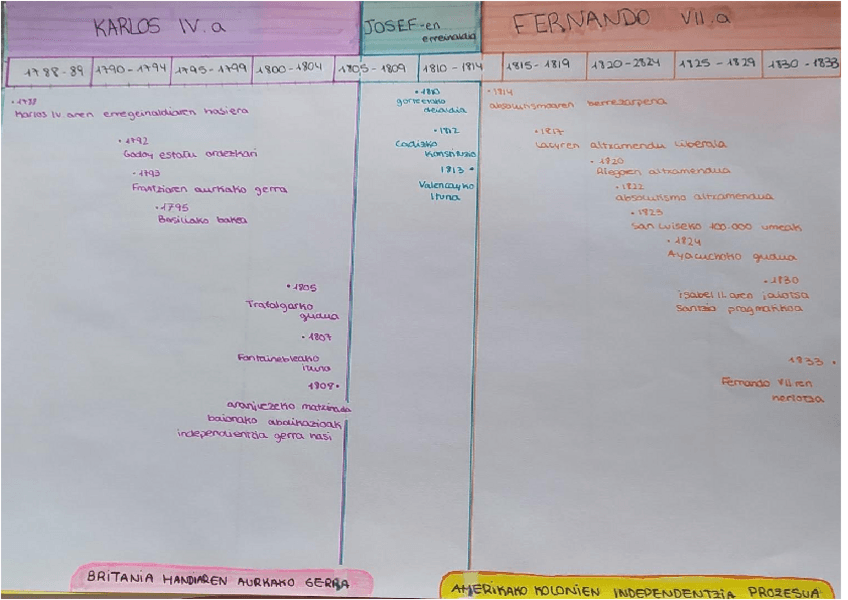 KARLOS IV.a
JOSEF-en
erreinaldia
FERNANDO VII.a
1788-89
1790-1794
1795-1799
1800-1804
1805-1809
1810-1814
1815-1819
1820-2824
1825-1829
1830-1833
1788
Karlos IV.aren erregeinaldiaren hasiera
1792
Godoy estatu ordezkari
1793
Frantziaren aurkako gerra
1795
Basiliako bakea
1805
Trafalgarko
gudua
1807
Fontainebleako
ituna
1808
aranjuezeko matxinada
baionako abdikazioak
independentzia gerra hasi
1810
gorteetako
deialdia
1812
Cadizko
Konstituzio
1813
Valencayko
Ituna
1814
absolutismoaren berrezarpena
1817
Lacyren altxamendu liberala
1820
Riegoren altxamendua
1822
absolutismo altxamendua
1823
San Luiseko 100.000 umeak
1824
Ayacuchoko gudua
1830
isabel II.aren jaiotza
Santzio pragmatikoa
1833
Fernando VII.ren
heriotza
BRITANIA HANDIAREN AURKAKO GERRA
AMERIKAKO KOLONIEN INDEPENDENTZIA PROZESUA